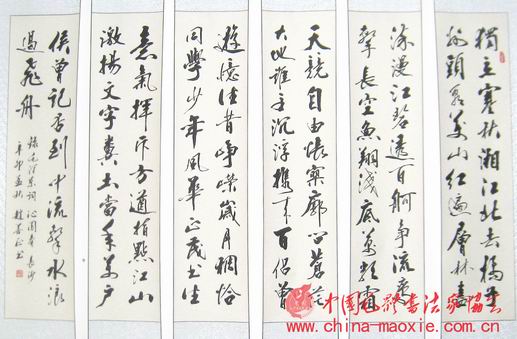 獨立寒秋湘江北去橘子
洲頭看萬山紅遍層林盡
染漫江碧透百舸爭流鷹
擊長空魚翔淺底萬類霜
天競自由悵寥廓問蒼茫
大地誰主沉浮攜來百侶曾
遊憶往昔崢嶸歲月稠恰
同學少年風華正茂書生
意氣揮斥方遒指點江山
激揚文字糞土當年萬戶
侯曾記否到中流擊水浪
遏飛舟
錄毛澤東詞沁園春長沙
辛卯
www.china-maoxie.com